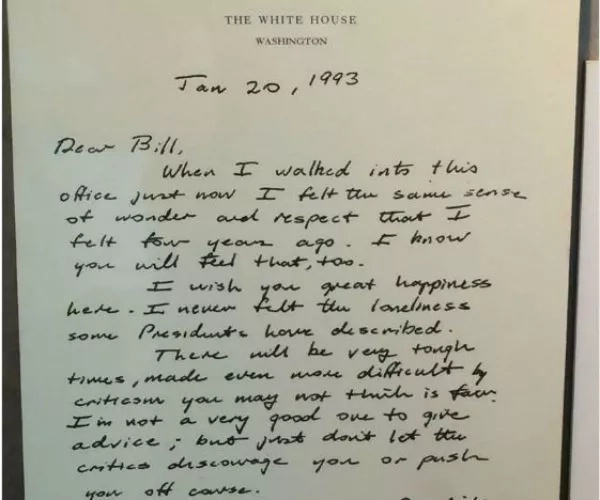 THE WHITE HOUSE
WASHINGTON
Jan 20, 1993
Dear Bill,
When I walked into this
office just now I felt the same sense
of wonder and respect that I
felt four years ago. I know
you will feel that, too.
I wish you great happiness
here. I never felt the loneliness
some Presidents have described.
There will be very tough
times, made even more difficult by
criticism you may not think is fair.
I'm not a very good one to give
advice; but just don't let the
critics discourage you or push
you off course.